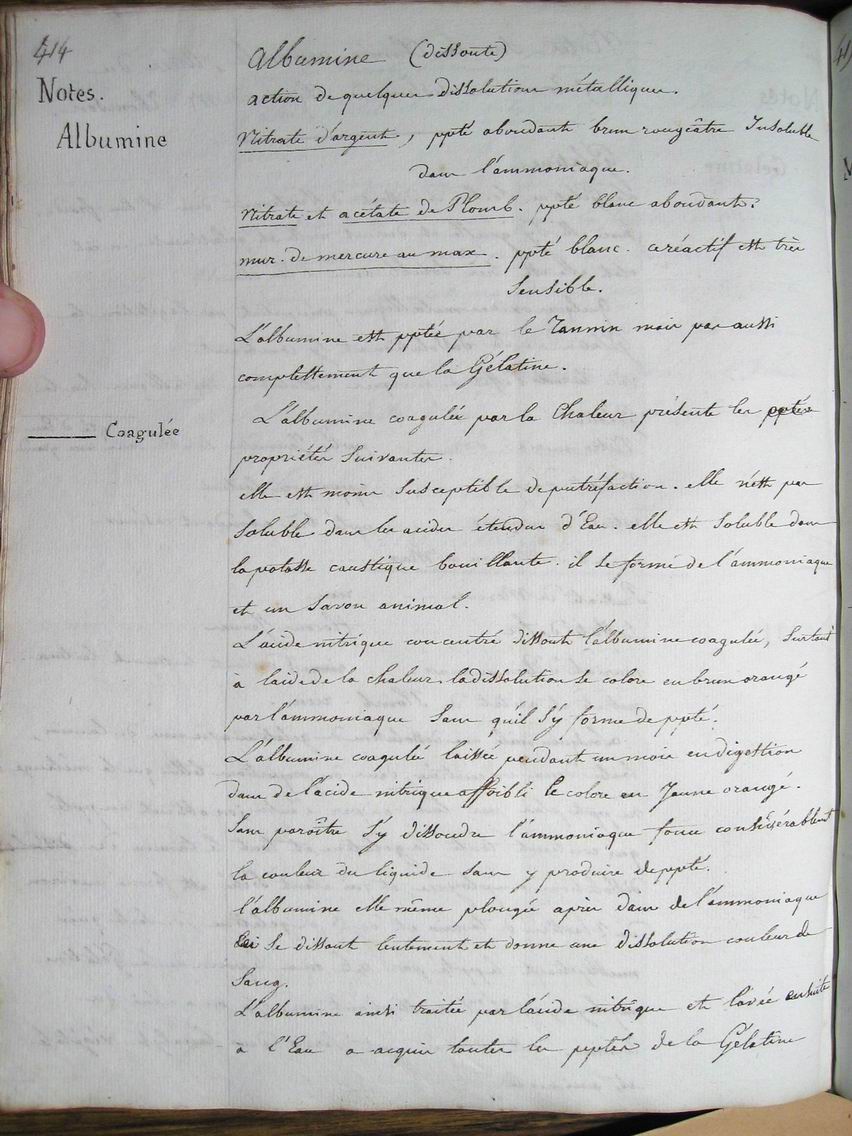 414
Notes.
Albumine
Albumine (dissoute)
action de quelques dissolutions métalliques.
Nitrate d'argent, ppté abondant brun rougeâtre Insoluble
dans l'ammoniaque.
Nitrate et acétate de Plomb. ppté blanc abondant.
mur. de mercure au max. ppté blanc. ce réactif est très
sensible.
L'albumine est pptée par le Tannin mais pas aussi
complettement que la Gélatine.
Coagulée
L'albumine coagulée par la Chaleur présente les
propriétés suivantes.
elle est moins susceptible de putréfaction. elle n'est pas
soluble dans les acides étendus d'Eau. elle est soluble dans
la potasse caustique bouillante. il se forme de l'ammoniaque
et un savon animal.
L'acide nitrique concentré dissout l'albumine coagulée, surtout
à l'aide de la chaleur. la dissolution se colore en brun orangé
par l'ammoniaque sans qu'il s'y forme de ppté.
L'albumine coagulée laissée pendant un mois en digestion
dans de l'acide nitrique affoibli se colore en Jaune orangé.
sans paroître s'y dissoudre l'ammoniaque fonce considérablemt
la couleur du liquide sans y produire de ppté.
l'albumine elle même plongée après dans de l'ammoniaque
se dissout lentement et donne une dissolution couleur de
sang.
L'albumine ainsi traitée par l'acide nitrique et lavée ensuite
a l'Eau a acquis toutes les pptés de la Gélatine